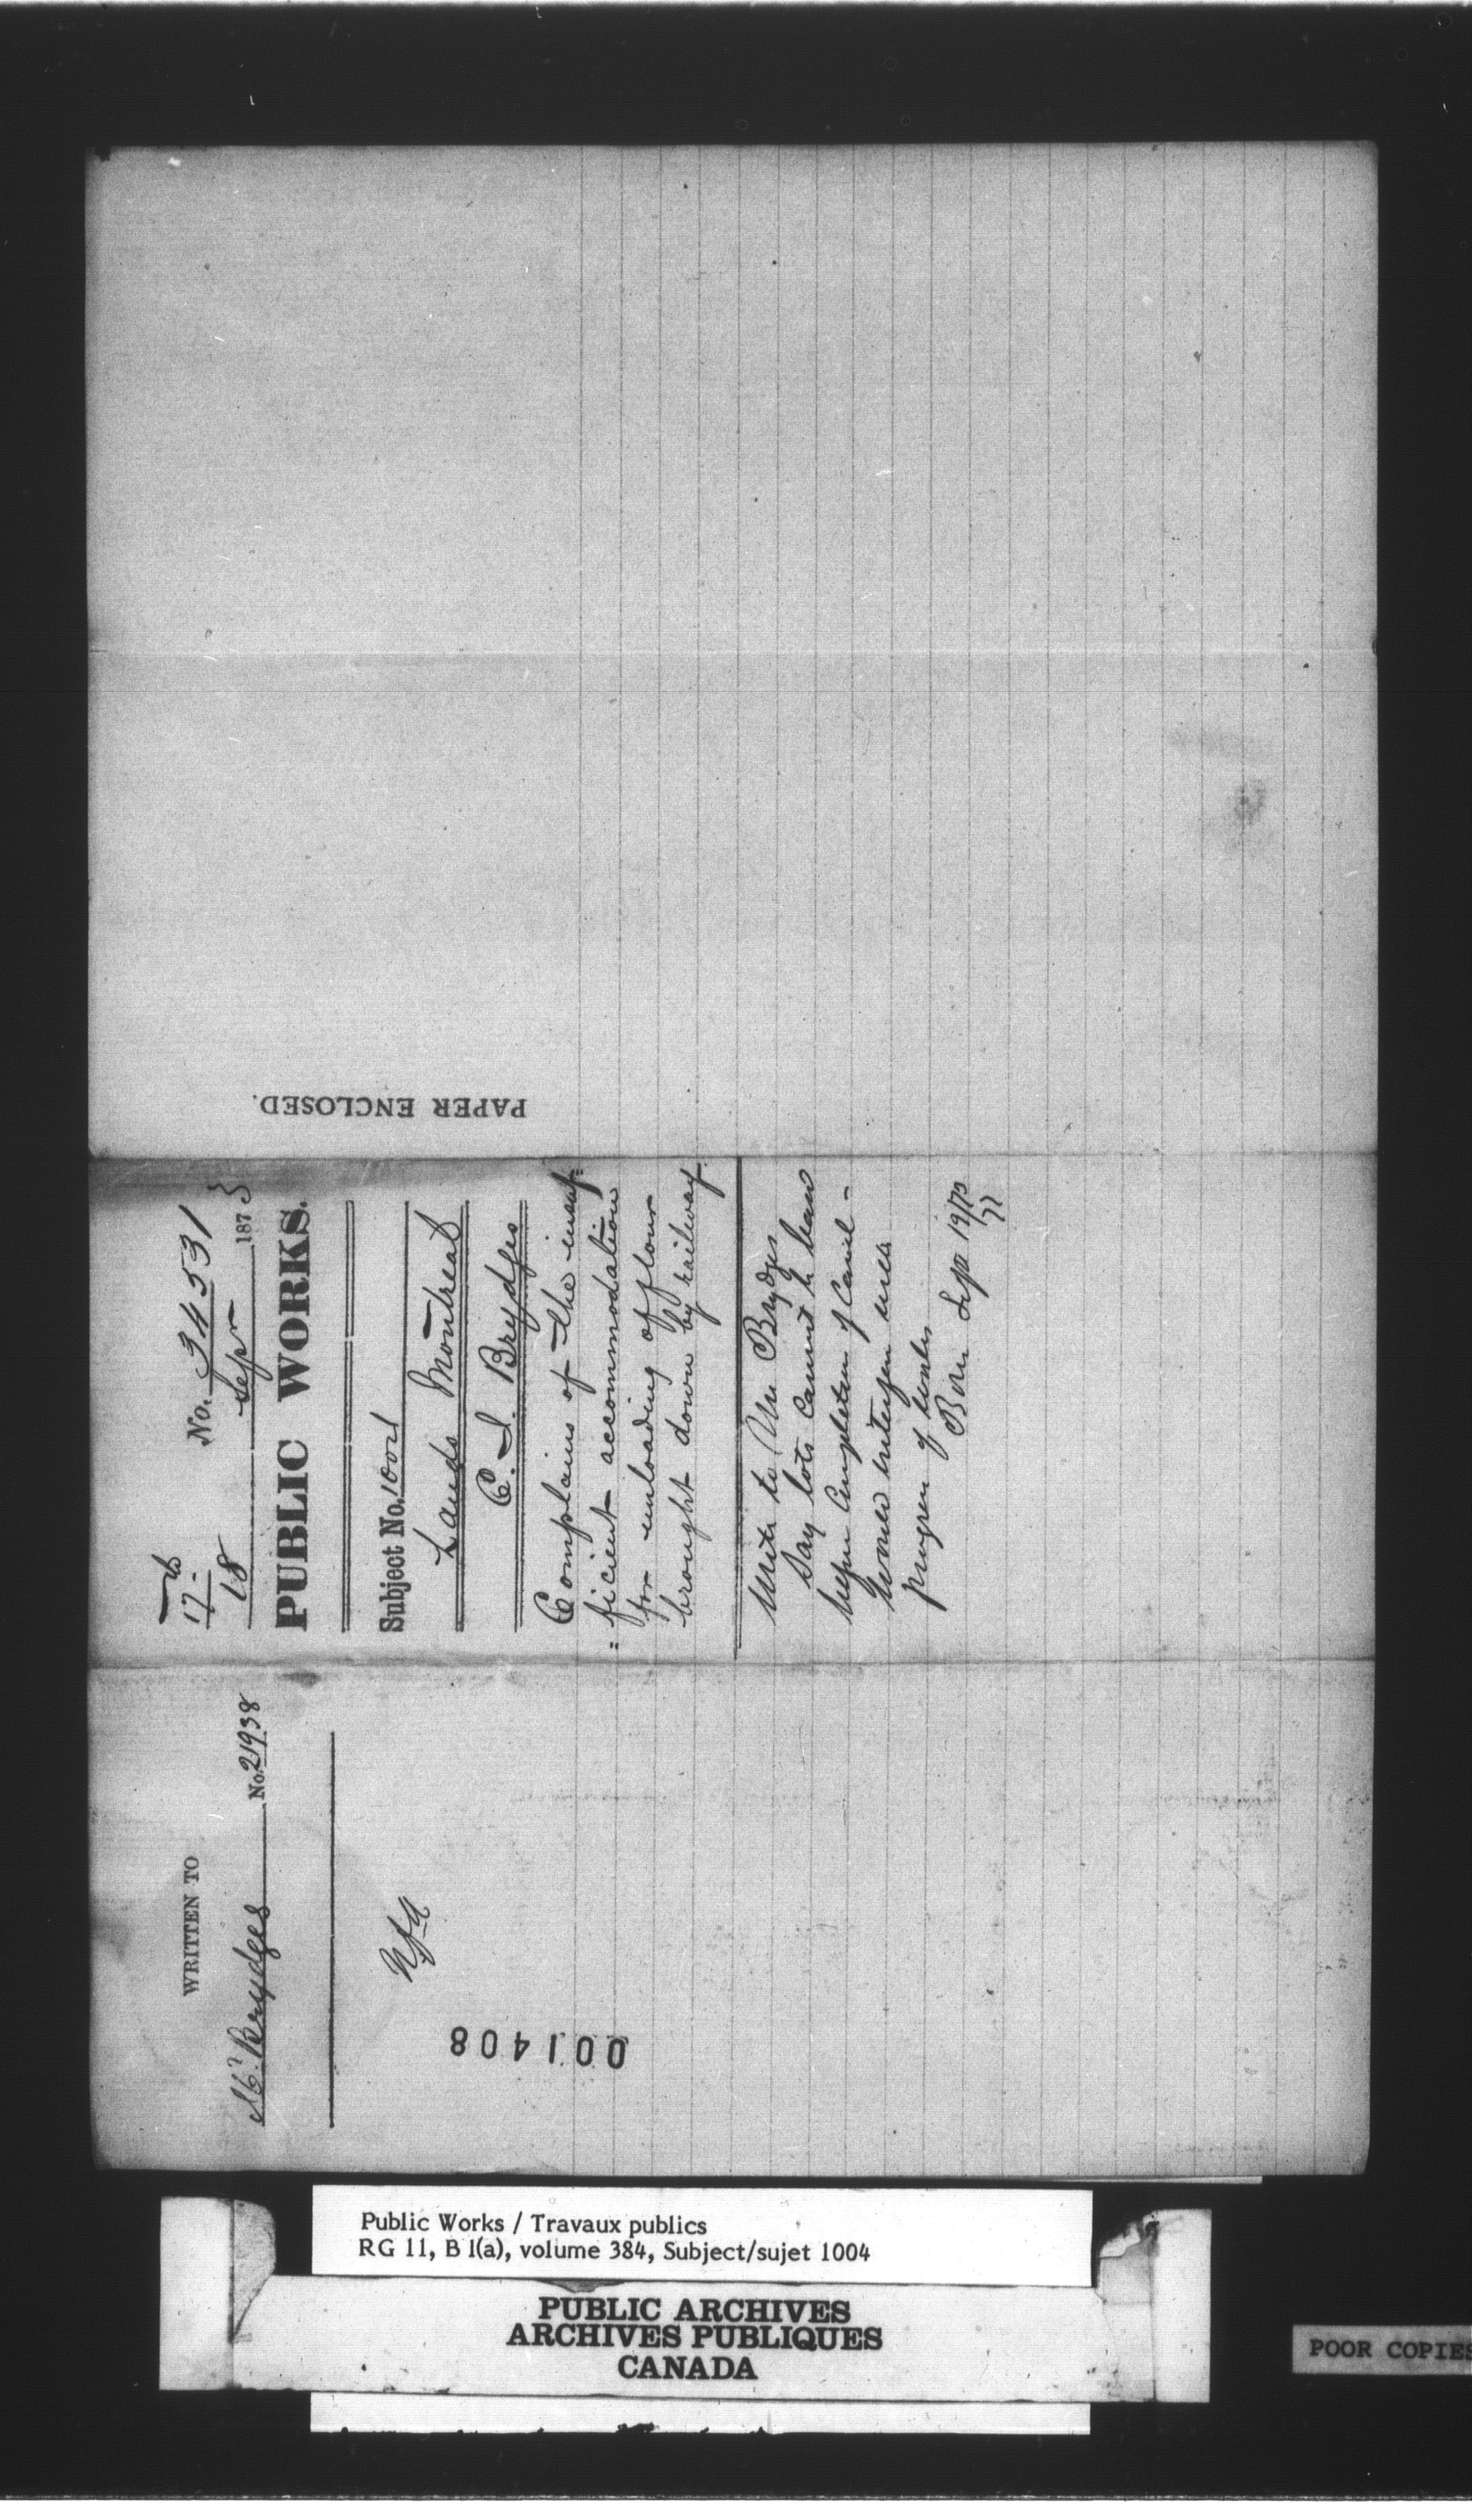 PAPER ENCLOSED.
17
No. 34531
18 Sepr 1873
PUBLIC WORKS.
Subject No. 1004
Lands Montreal
C. J. Brydges
Complains of the insuf=
=ficient accommodation
for unloading of flour
brought down by railway.
Write to Mr Brydges
Say lots cannot be leased
upon completion of Canal -
would interfere with
progress of works
Sepr 19/73
WRITTEN TO
Mr. Brydges No. 21938
Nfa
001408
Public Works / Travaux publics
RG 11, B 1(a), volume 384, Subject/sujet 1004
PUBLIC ARCHIVES
ARCHIVES PUBLIQUES
CANADA
POOR COPIES